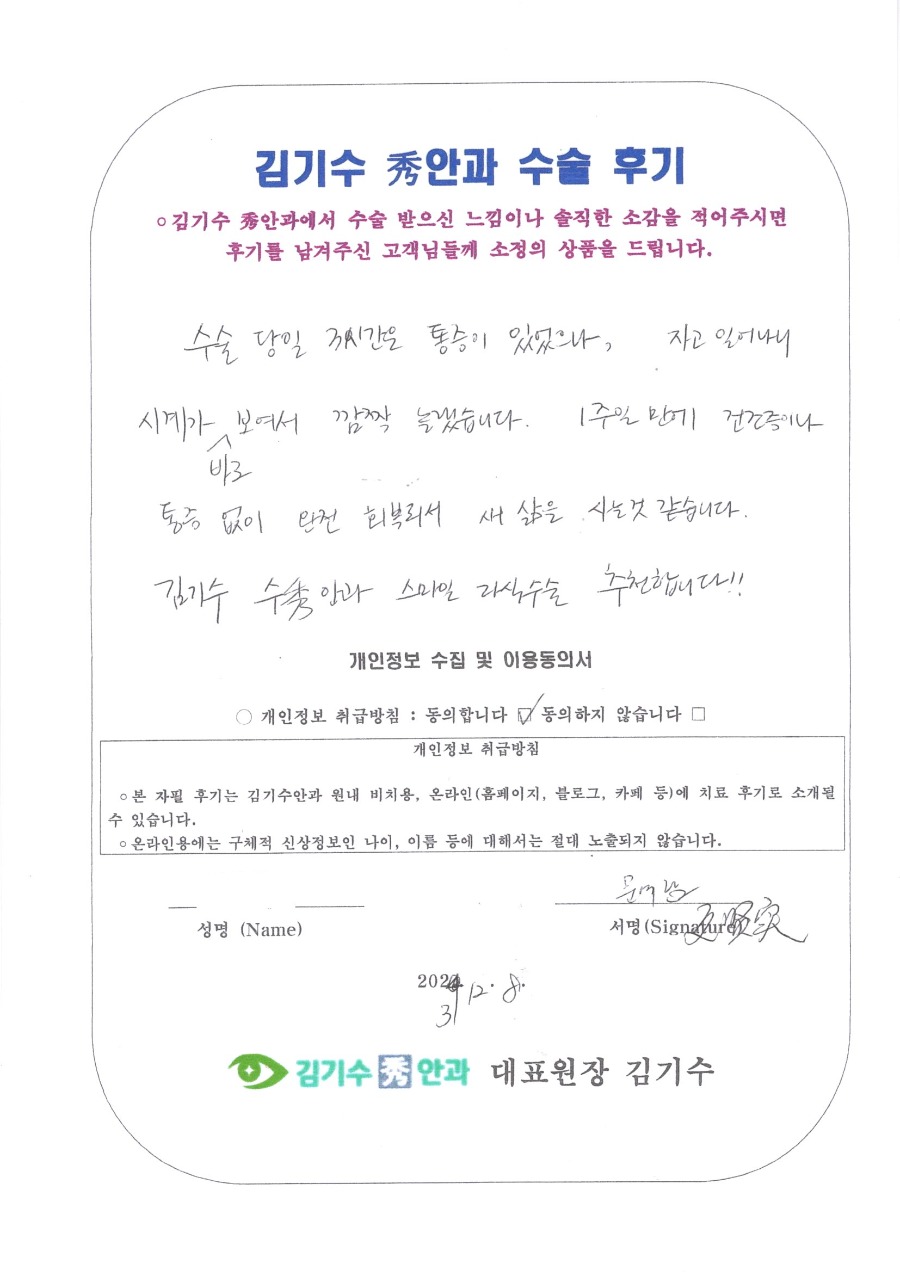 김기수 秀안과 수술 후기
○김기수 秀안과에서 수술 받으신 느낌이나 솔직한 소감을 적어주시면
후기를 남겨주신 고객님들께 소정의 상품을 드립니다.
수술 당일 3시간은 통증이 있었으나, 자고 일어나니
시계가 바로 보여서 깜짝 놀랬습니다. 1주일 만에 건조증이나
통증 없이 완전 회복되서 새 삶을 사는것 같습니다.
김기수 수秀안과 스마일 라식수술 추천합니다!!
개인정보 수집 및 이용동의서
○ 개인정보 취급방침 : 동의합니다 ☑ 동의하지 않습니다 □
개인정보 취급방침
○본 자필 후기는 김기수안과 원내 비치용, 온라인(홈페이지, 블로그, 카페 등)에 치료 후기로 소개될
수 있습니다.
○온라인용에는 구체적 신상정보인 나이, 이름 등에 대해서는 절대 노출되지 않습니다.
성명 (Name) 서명(Signature)
12. 8.
김기수 秀 안과 대표원장 김기수